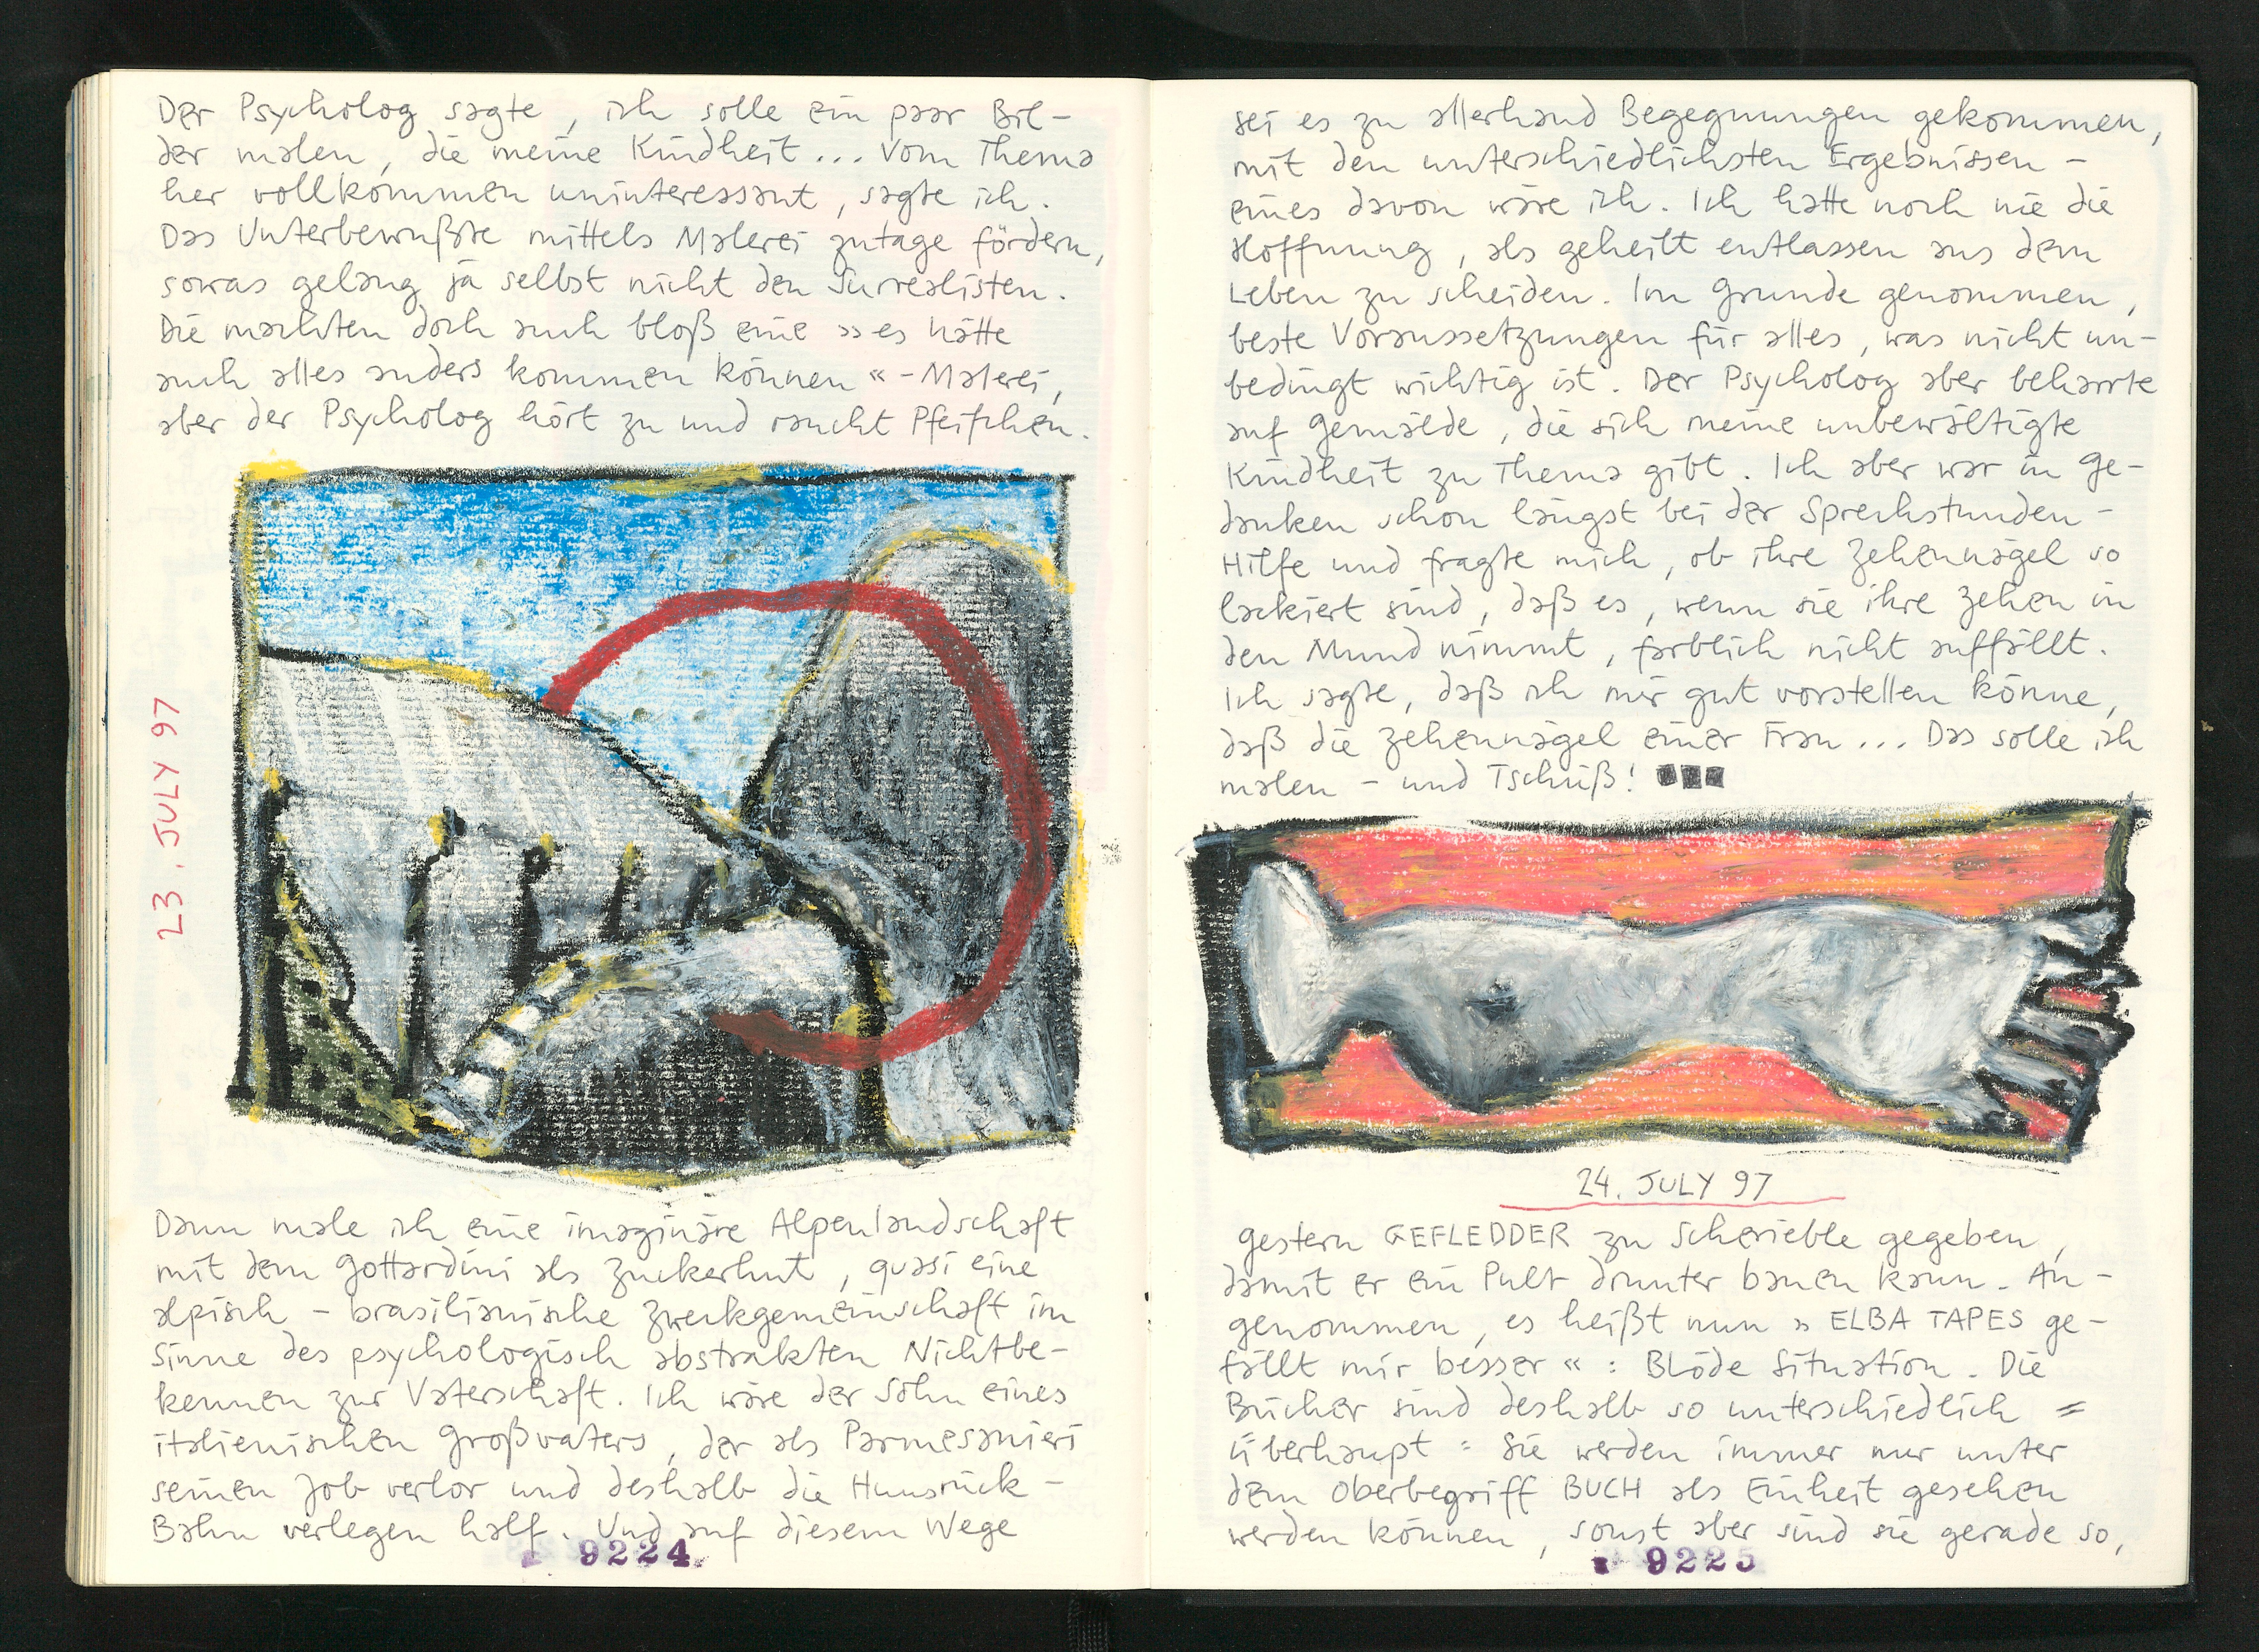 Der Psycholog sagte, ich solle ein paar Bil-
der malen, die meine Kindheit... Vom Thema
her vollkommen uninteressant, sagte ich.
Das Unterbewußte mittels Malerei zutage fördern,
sowas gelang ja selbst nicht den Surrealisten.
Die machten doch auch bloß eine »es hätte
auch alles anders kommen können«-Malerei,
aber der Psycholog hört zu und raucht Pfeifchen.
23. JULY 97
Dann male ich eine imaginäre Alpenlandschaft
mit dem Gottardini als Zuckerhut, quasi eine
alpisch-brasilianische Zweckgemeinschaft im
Sinne des psychologisch abstrakten Nichtbe-
kennen zur Vaterschaft. Ich wäre der Sohn eines
italienischen Großvaters, der als Parmesanieri
seinen Job verlor und deshalb die Hunsrück-
Bahn verlegen half. Und auf diesem Wege
9224
sei es zu allerhand Begegnungen gekommen,
mit den unterschiedlichsten Ergebnissen -
eines davon wäre ich. Ich hatte noch nie die
Hoffnung, als geheilt entlassen aus dem
Leben zu scheiden. Im Grunde genommen,
beste Voraussetzungen für alles, was nicht un-
bedingt wichtig ist. Der Psycholog aber beharrte
auf Gemälde, die sich meine unbewältigte
Kindheit zu Thema gibt. Ich aber war in Ge-
danken schon längst bei der Sprechstunden-
Hilfe und fragte mich, ob ihre Zehennägel so
lackiert sind, daß es, wenn sie ihre Zehen in
den Mund nimmt, farblich nicht auffällt.
Ich sagte, daß ich mir gut vorstellen könne,
daß die Zehennägel einer Frau... Das solle ich
malen - und Tschüß!
24. JULY 97
gestern GEFLEDDER zu Scherieble gegeben,
damit er ein Pult drunter bauen kann. An-
genommen, es heißt nun »ELBA TAPES ge-
fällt mir besser«: Blöde Situation. Die
Bücher sind deshalb so unterschiedlich =
überhaupt: Sie werden immer nur unter
dem Oberbegriff BUCH als Einheit gesehen
werden können, sonst aber sind sie gerade so,
9225